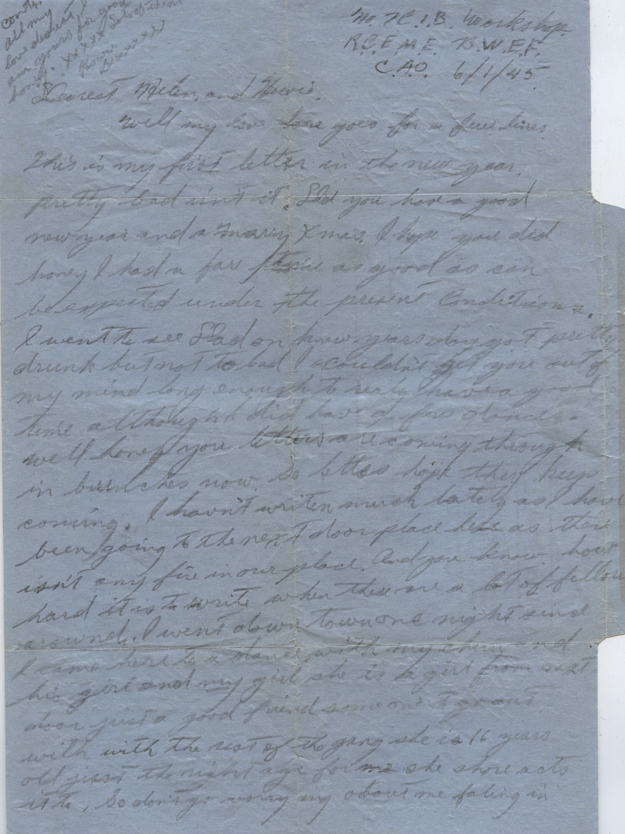 cont.
all my
love dearest I
am yours for good
honey. xxxx
xxxxxx
M.T.C.I.B. Workshop.
R.C.E.M.E. B.W.E.F.
C.A.O. 6/1/45.
Dearest Helen, and Howie.
Well my love here goes for a few lines.
This is my first letter in the new year.
pretty bad isn't it. Did you have a good
new year and a marry Xmas, I hope you did
honey I had a fare time as good as can
be expected under the present conditions.
I went to see Dad on new years day got pretty
drunk but not to bad I couldn't get you out of
my mind long enough to really have a good
time although did have a fare dances.
well honey your letters are coming through
in bunches now. so lettes hope they keep
coming. I havn't writen much lately as I have
been going to the next door place here as there
isn't any fire in our place. And you know how
hard it is to write when there are a lot of fellow
around. I went down town one night since
I came here to a dance with my chum and
his girl and my girl she is a girl from next
door just a good friend someone to go out
with with the rest of the gang she is 16 years
old just the right age for me she shore acts
it to, So don't go worry my above me faling in